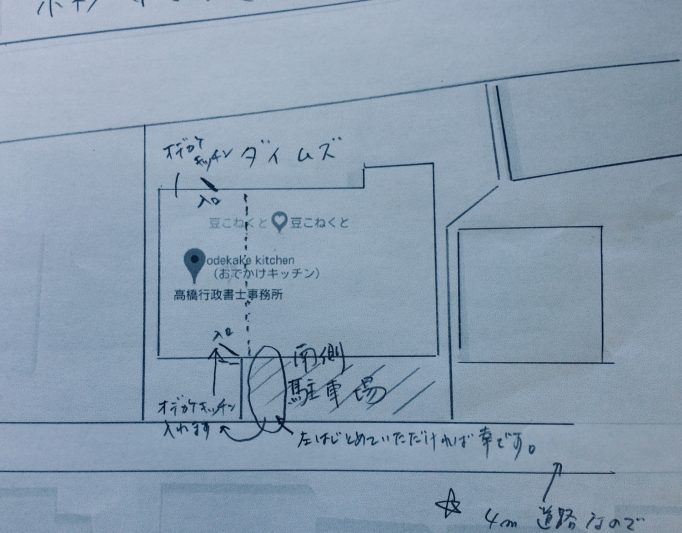 オデカケ
キッチン ダイムズ
入口
豆こねくと 豆こねくと
odekake kitchen
(おでかけキッチン)
高橋行政書士事務所
入口
南側
駐車場
オデカケキッチン
入れます
左はじとめていただければ幸です。
☆ 4m 道路なので